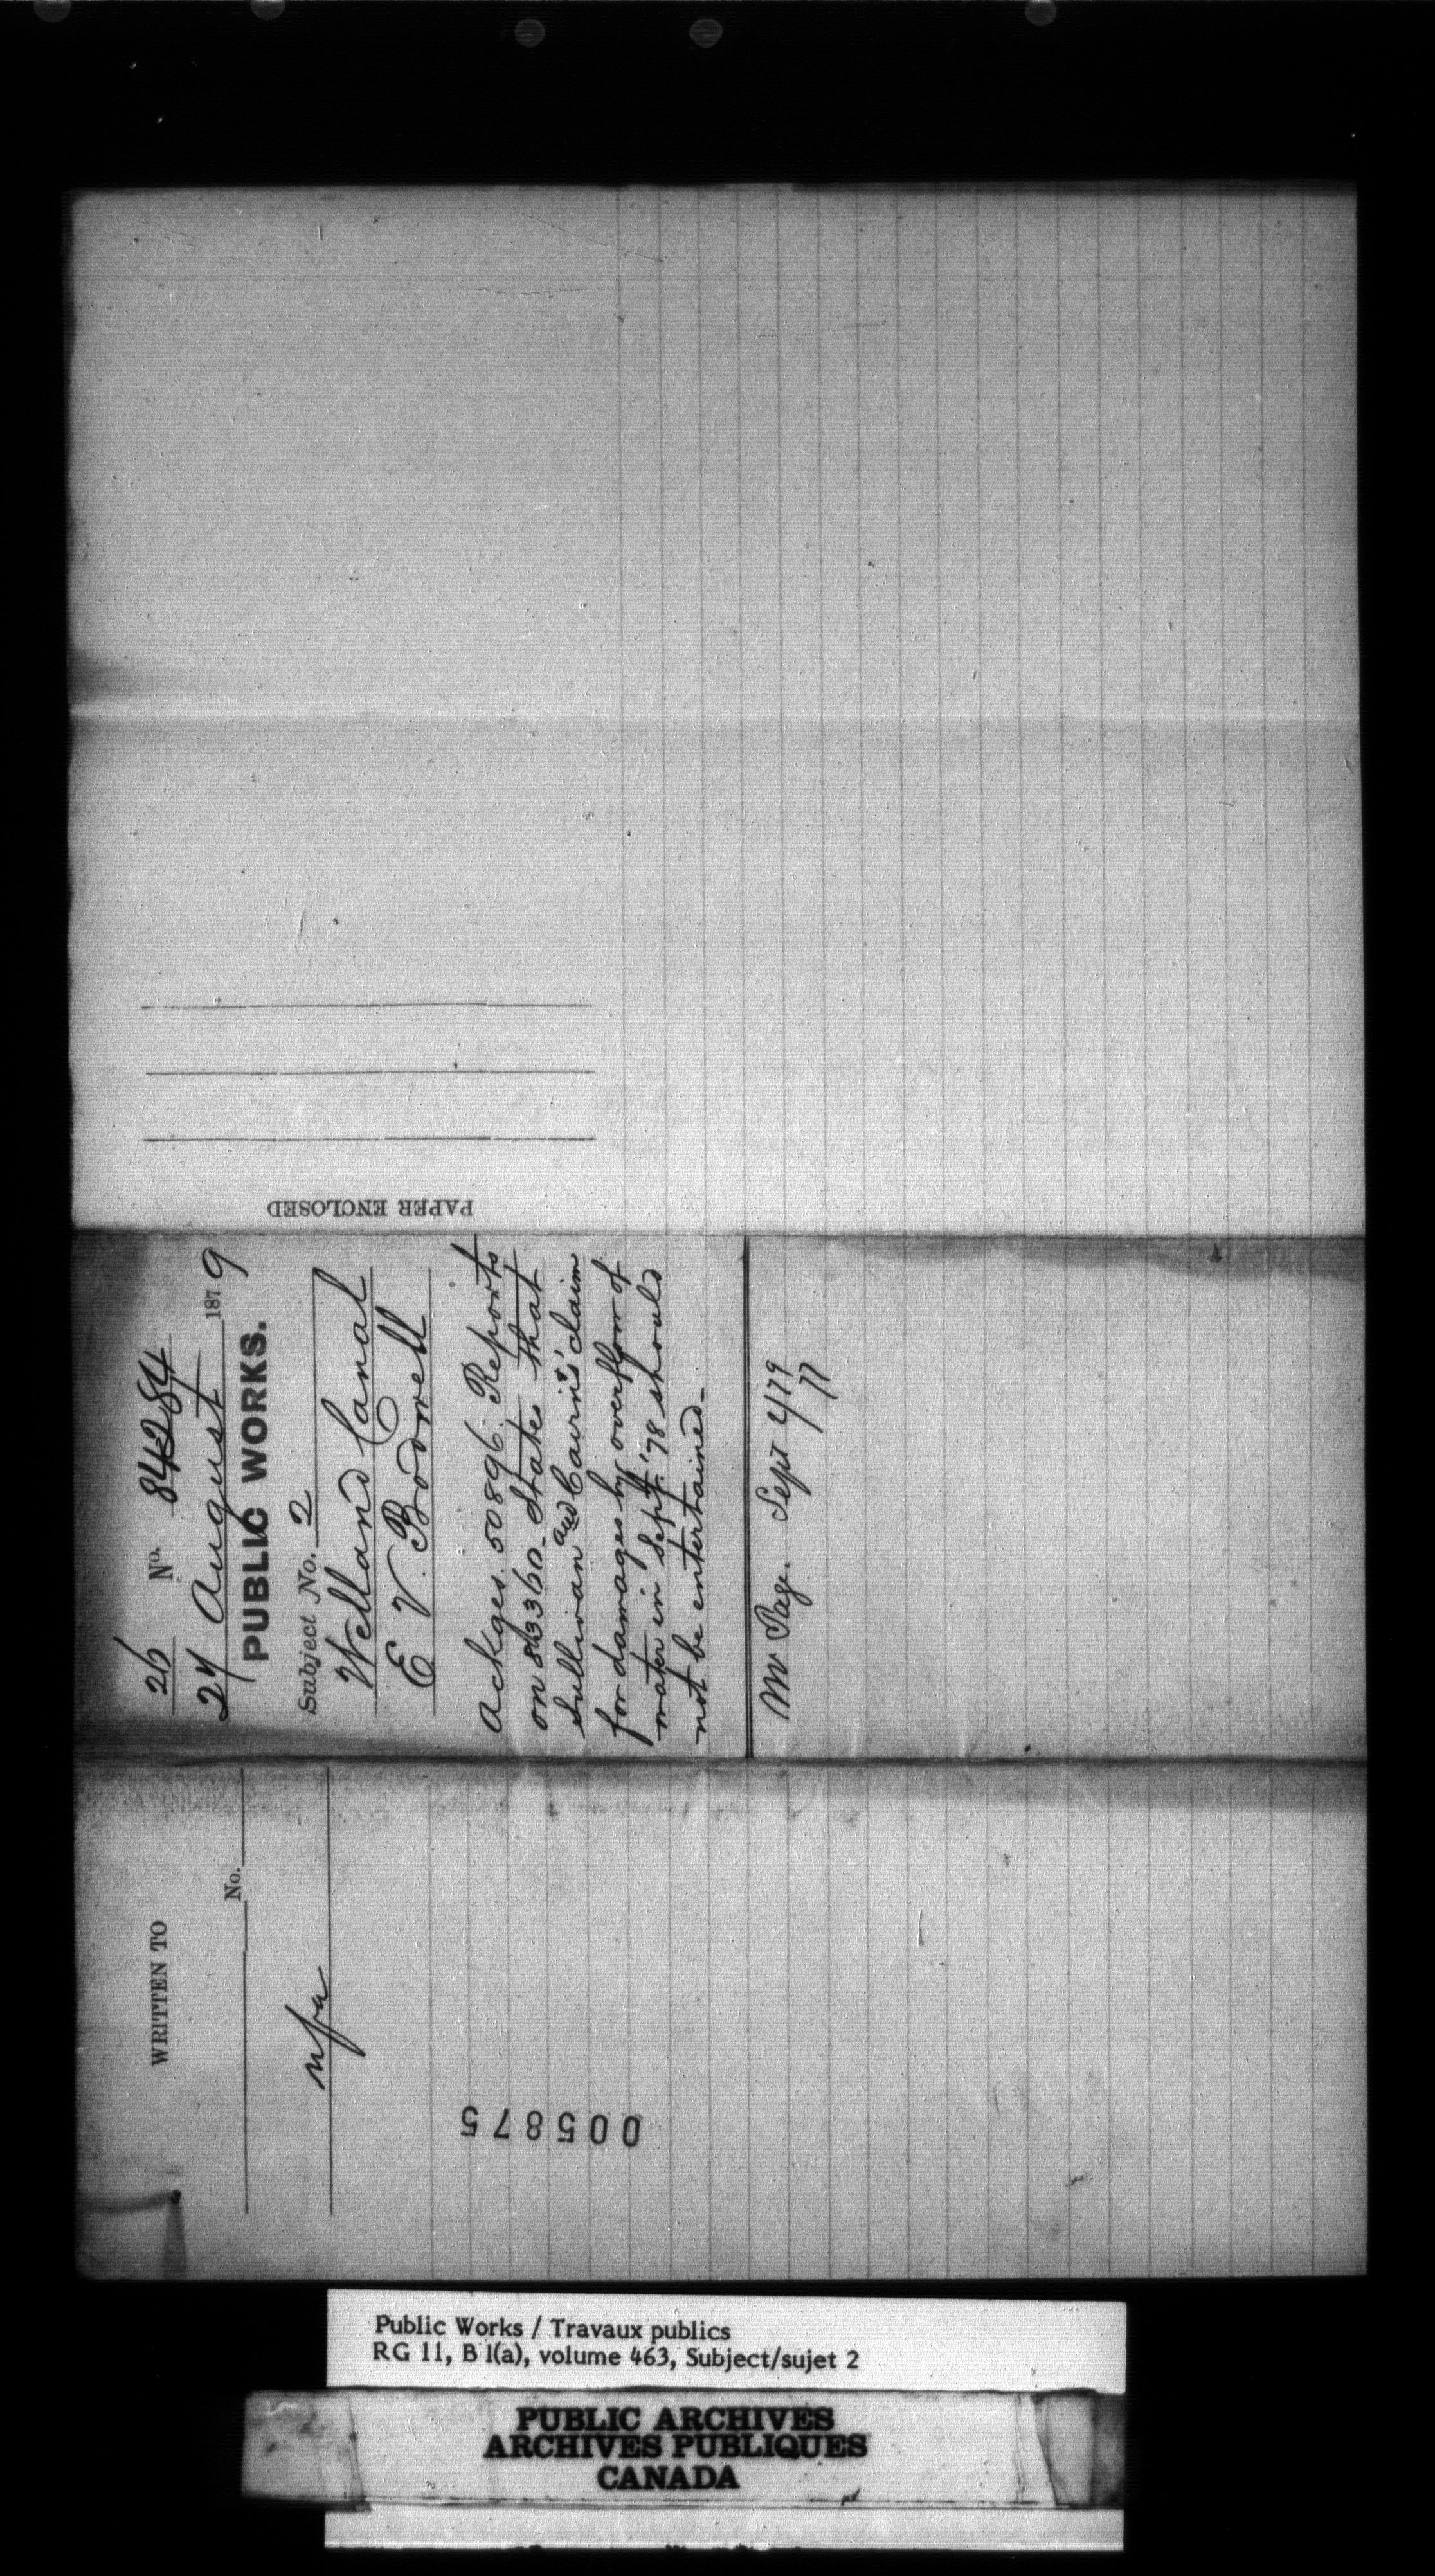 PAPER ENCLOSED
26 No. 84284
27 August 1879
PUBLIC WORKS.
Subject No. 2
Welland Canal
E. V. Bodwell
Ackges. 50896. Reports
on 83360. States that
Sullivan and Cairns' claim
for damages by overflow of
water in Sept. '78 should
not be entertained.
Mr Page. Sept 2/79
77
WRITTEN TO
No.
nfa
005875
Public Works / Travaux publics
RG 11, B 1(a), volume 463, Subject/sujet 2
PUBLIC ARCHIVES
ARCHIVES PUBLIQUES
CANADA